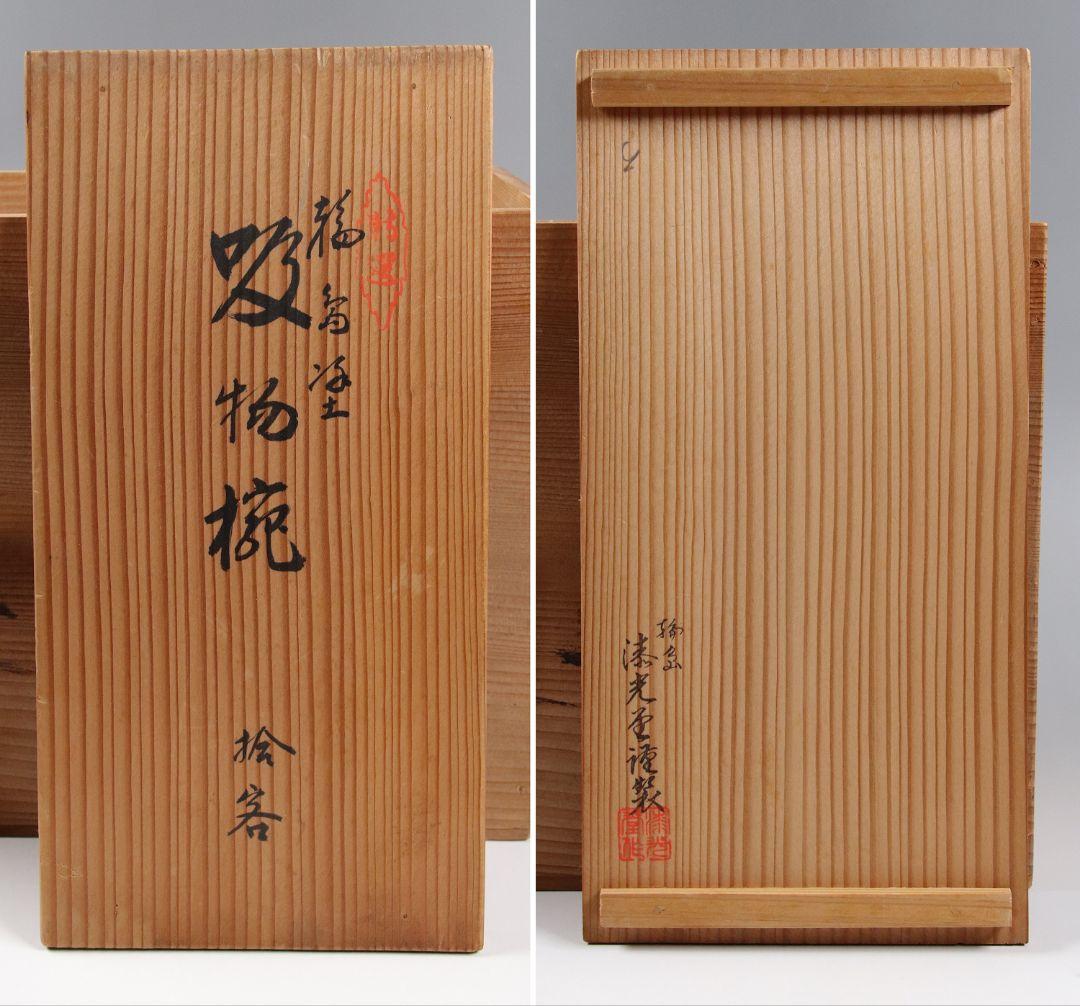 特選
輪島塗
吸物椀
拾客
輪島
漆光堂謹製